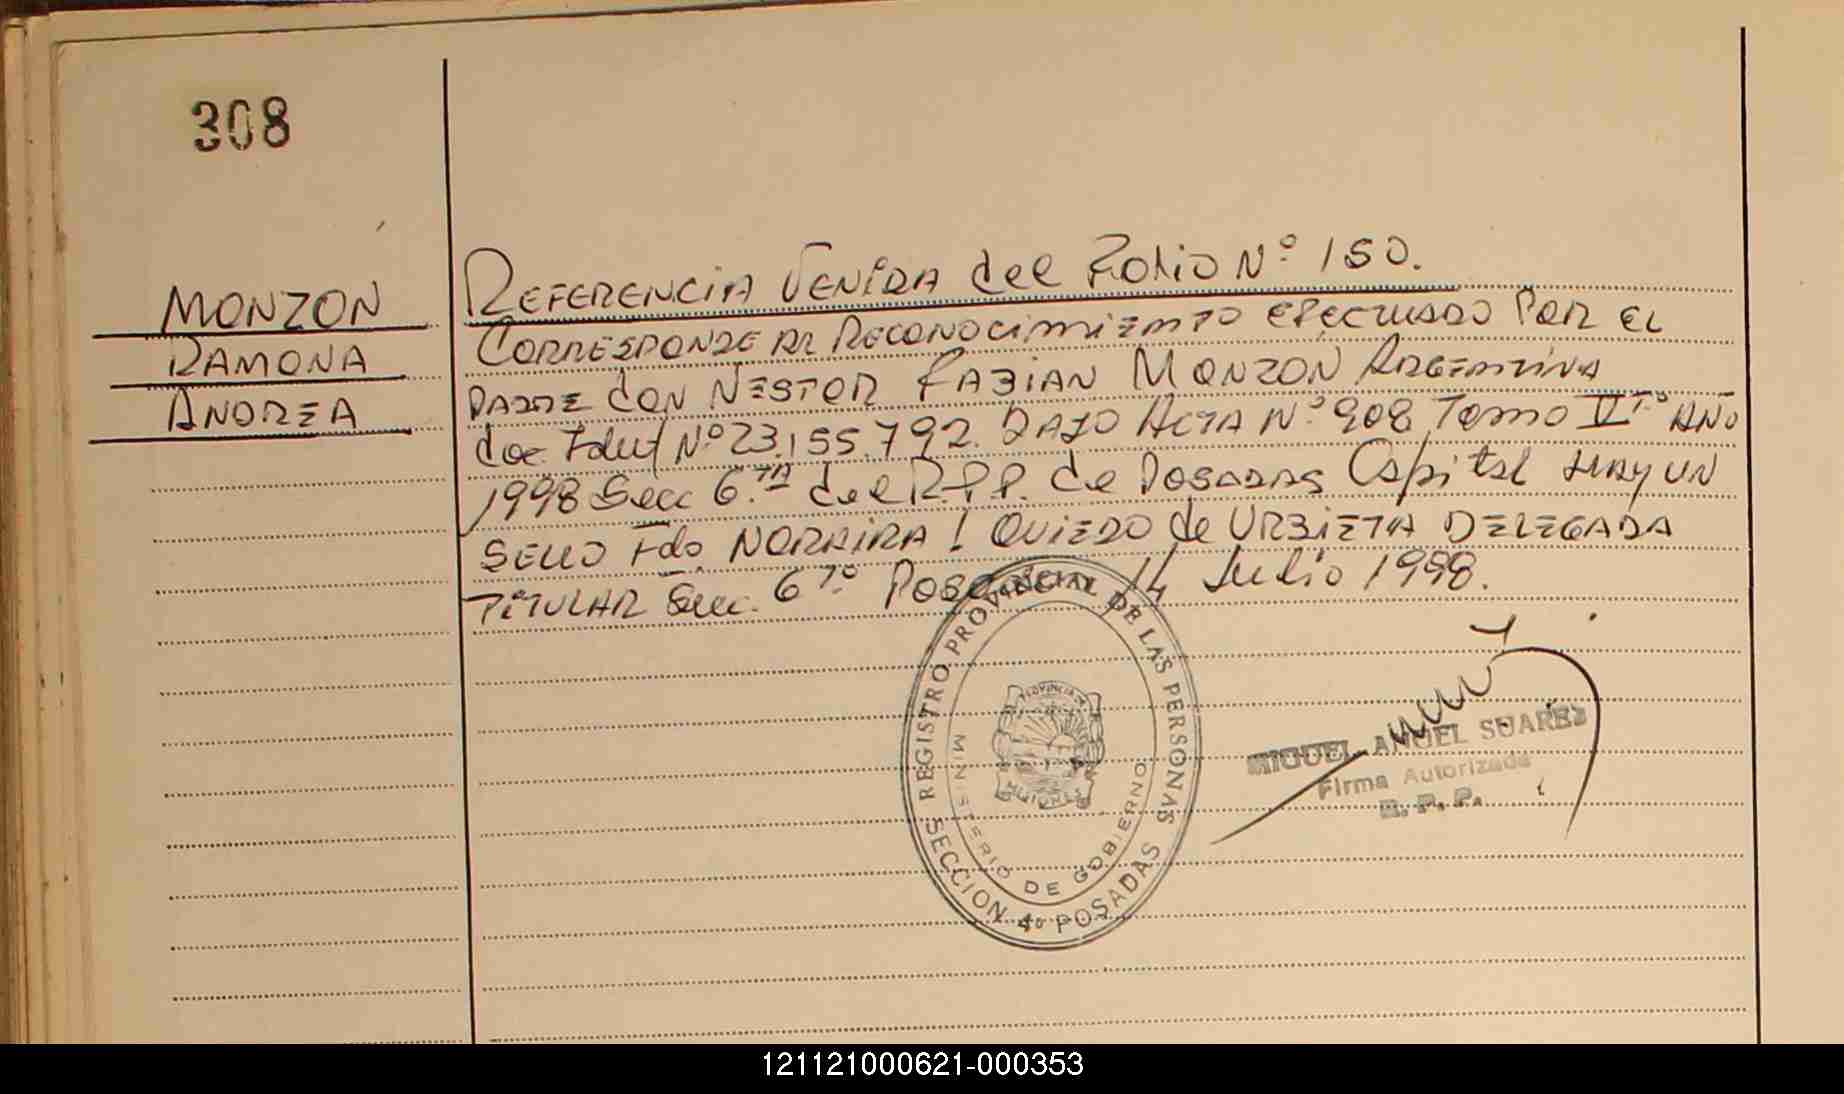 308
MONZON
RAMONA
ANDREA
REFERENCIA VENIDA del Folio Nº 150.
CORRESPONDE AL RECONOCIMIENTO EFECTUADO POR EL
PADRE don NESTOR FABIAN MONZON ARGENTINA
doc Ident Nº 23.155.792. BAJO ACTA Nº 908 Tomo VIº AÑO
1998 Secc 6.TA del R.P.P. de POSADAS Capital HAY UN
SELLO Fdo. NORMIRA I OVIEDO de URBIETA DELEGADA
TITULAR Secc. 6º. Posadas, 14 Julio 1998.
REGISTRO PROVINCIAL DE LAS PERSONAS
MINISTERIO DE GOBIERNO
PROVINCIA DE
MISIONES
SECCION 4º POSADAS
MIGUEL ANGEL SUAREZ
Firma Autorizada
R. P. P.
121121000621-000353